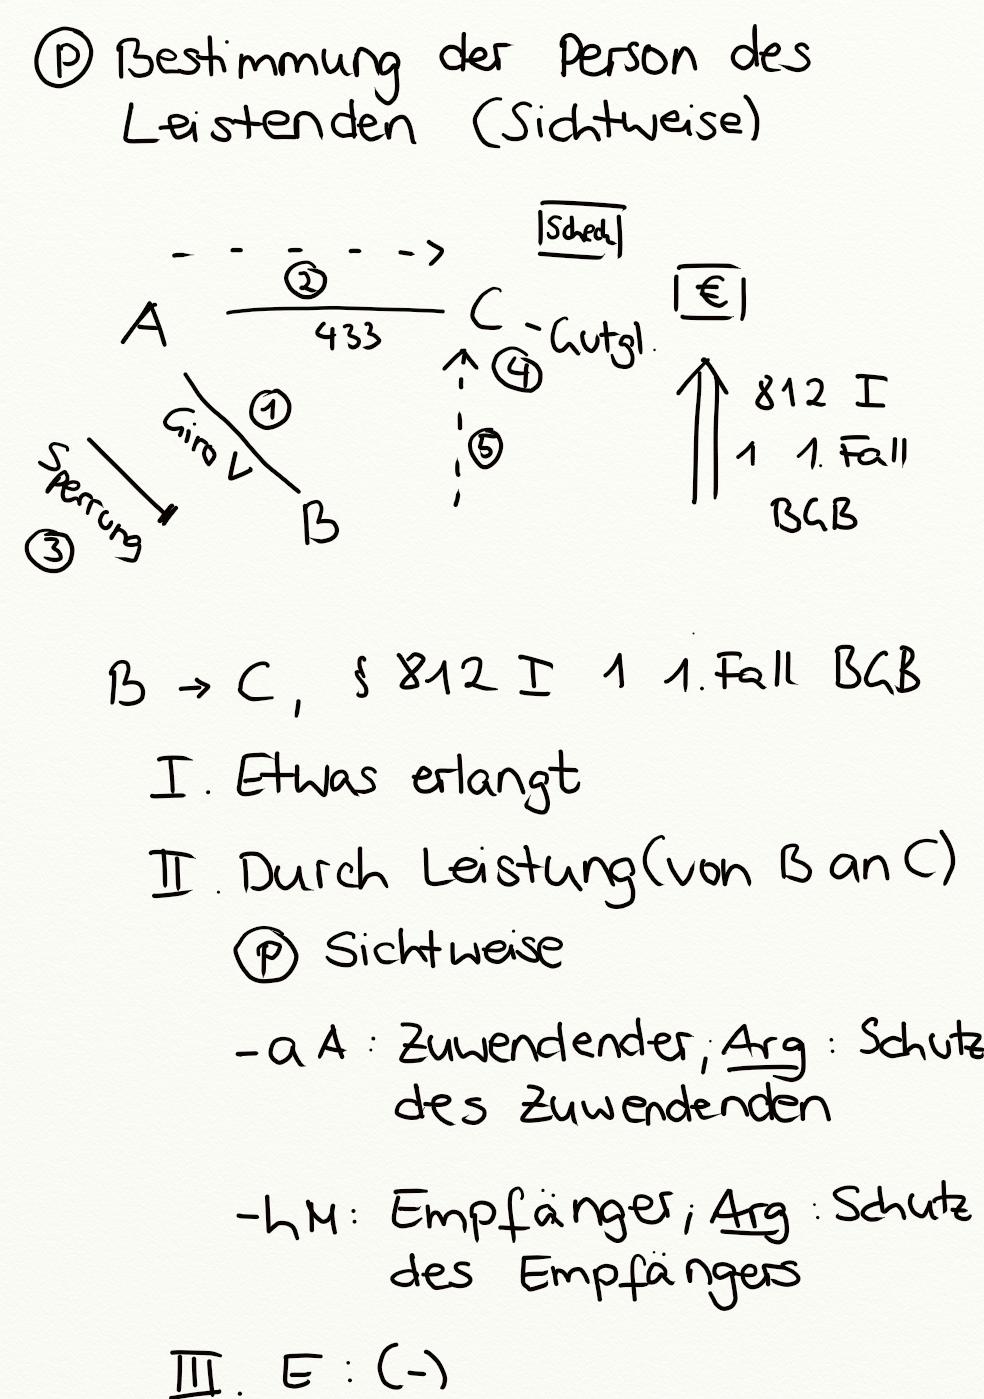 P Bestimmung der Person des
Leistenden (Sichtweise)
Scheck
2
€
A
C
433
- Gutgl.
4
812 I
1
Giro V
5
1 1. Fall
Sperrung
B
BGB
3
B → C, § 812 I 1 1. Fall BGB
I. Etwas erlangt
II. Durch Leistung (von B an C)
P Sichtweise
- a A : Zuwendender, Arg : Schutz
des Zuwendenden
- h M : Empfänger; Arg : Schutz
des Empfängers
III. E : (-)